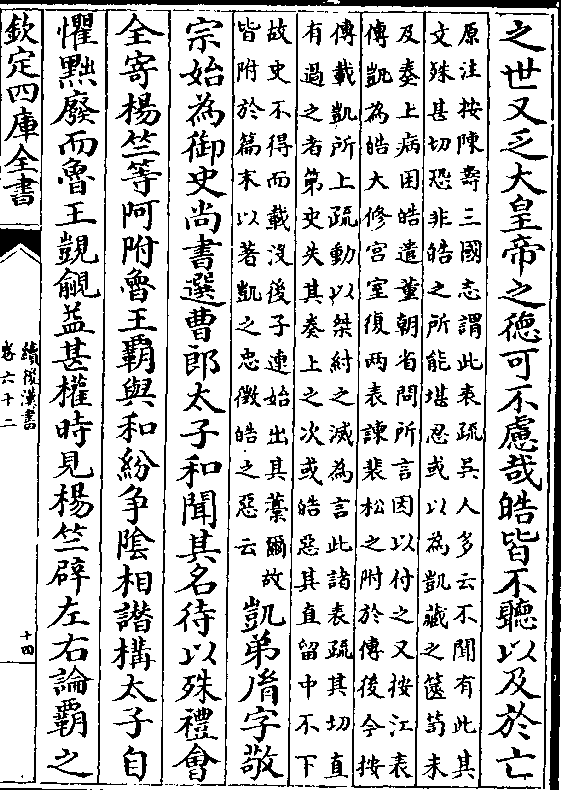 之世又乏大皇帝之德可不慮哉皓皆不聽以及於亡
原注按陳壽三國志謂此表疏吳人多云不聞有此其
文殊甚切恐非皓之所能堪忍或以為凱藏之篋笥未
及奏上病困皓遣董朝省問所言因以付之又按江表
傳凱為皓大修宫室復兩表諫裴松之附於傳後今按
傳載凱所上疏動以桀紂之滅為言此諸表疏其切直
有過之者第史失其奏上之次或皓惡其直留中不下
故史不得而載沒後子連始出其藁爾故
皆附於篇末以著凱之忠徵皓之惡云
凱弟胤字敬
宗始為御史尚書選曹郎太子和聞其名待以殊禮會
全寄楊竺等阿附魯王霸與和紛争陰相譖構太子自
懼黜廢而魯王覬覦益甚權時見楊竺辟左右論霸之
欽定四庫全書
續後漢書
卷六十二
十四